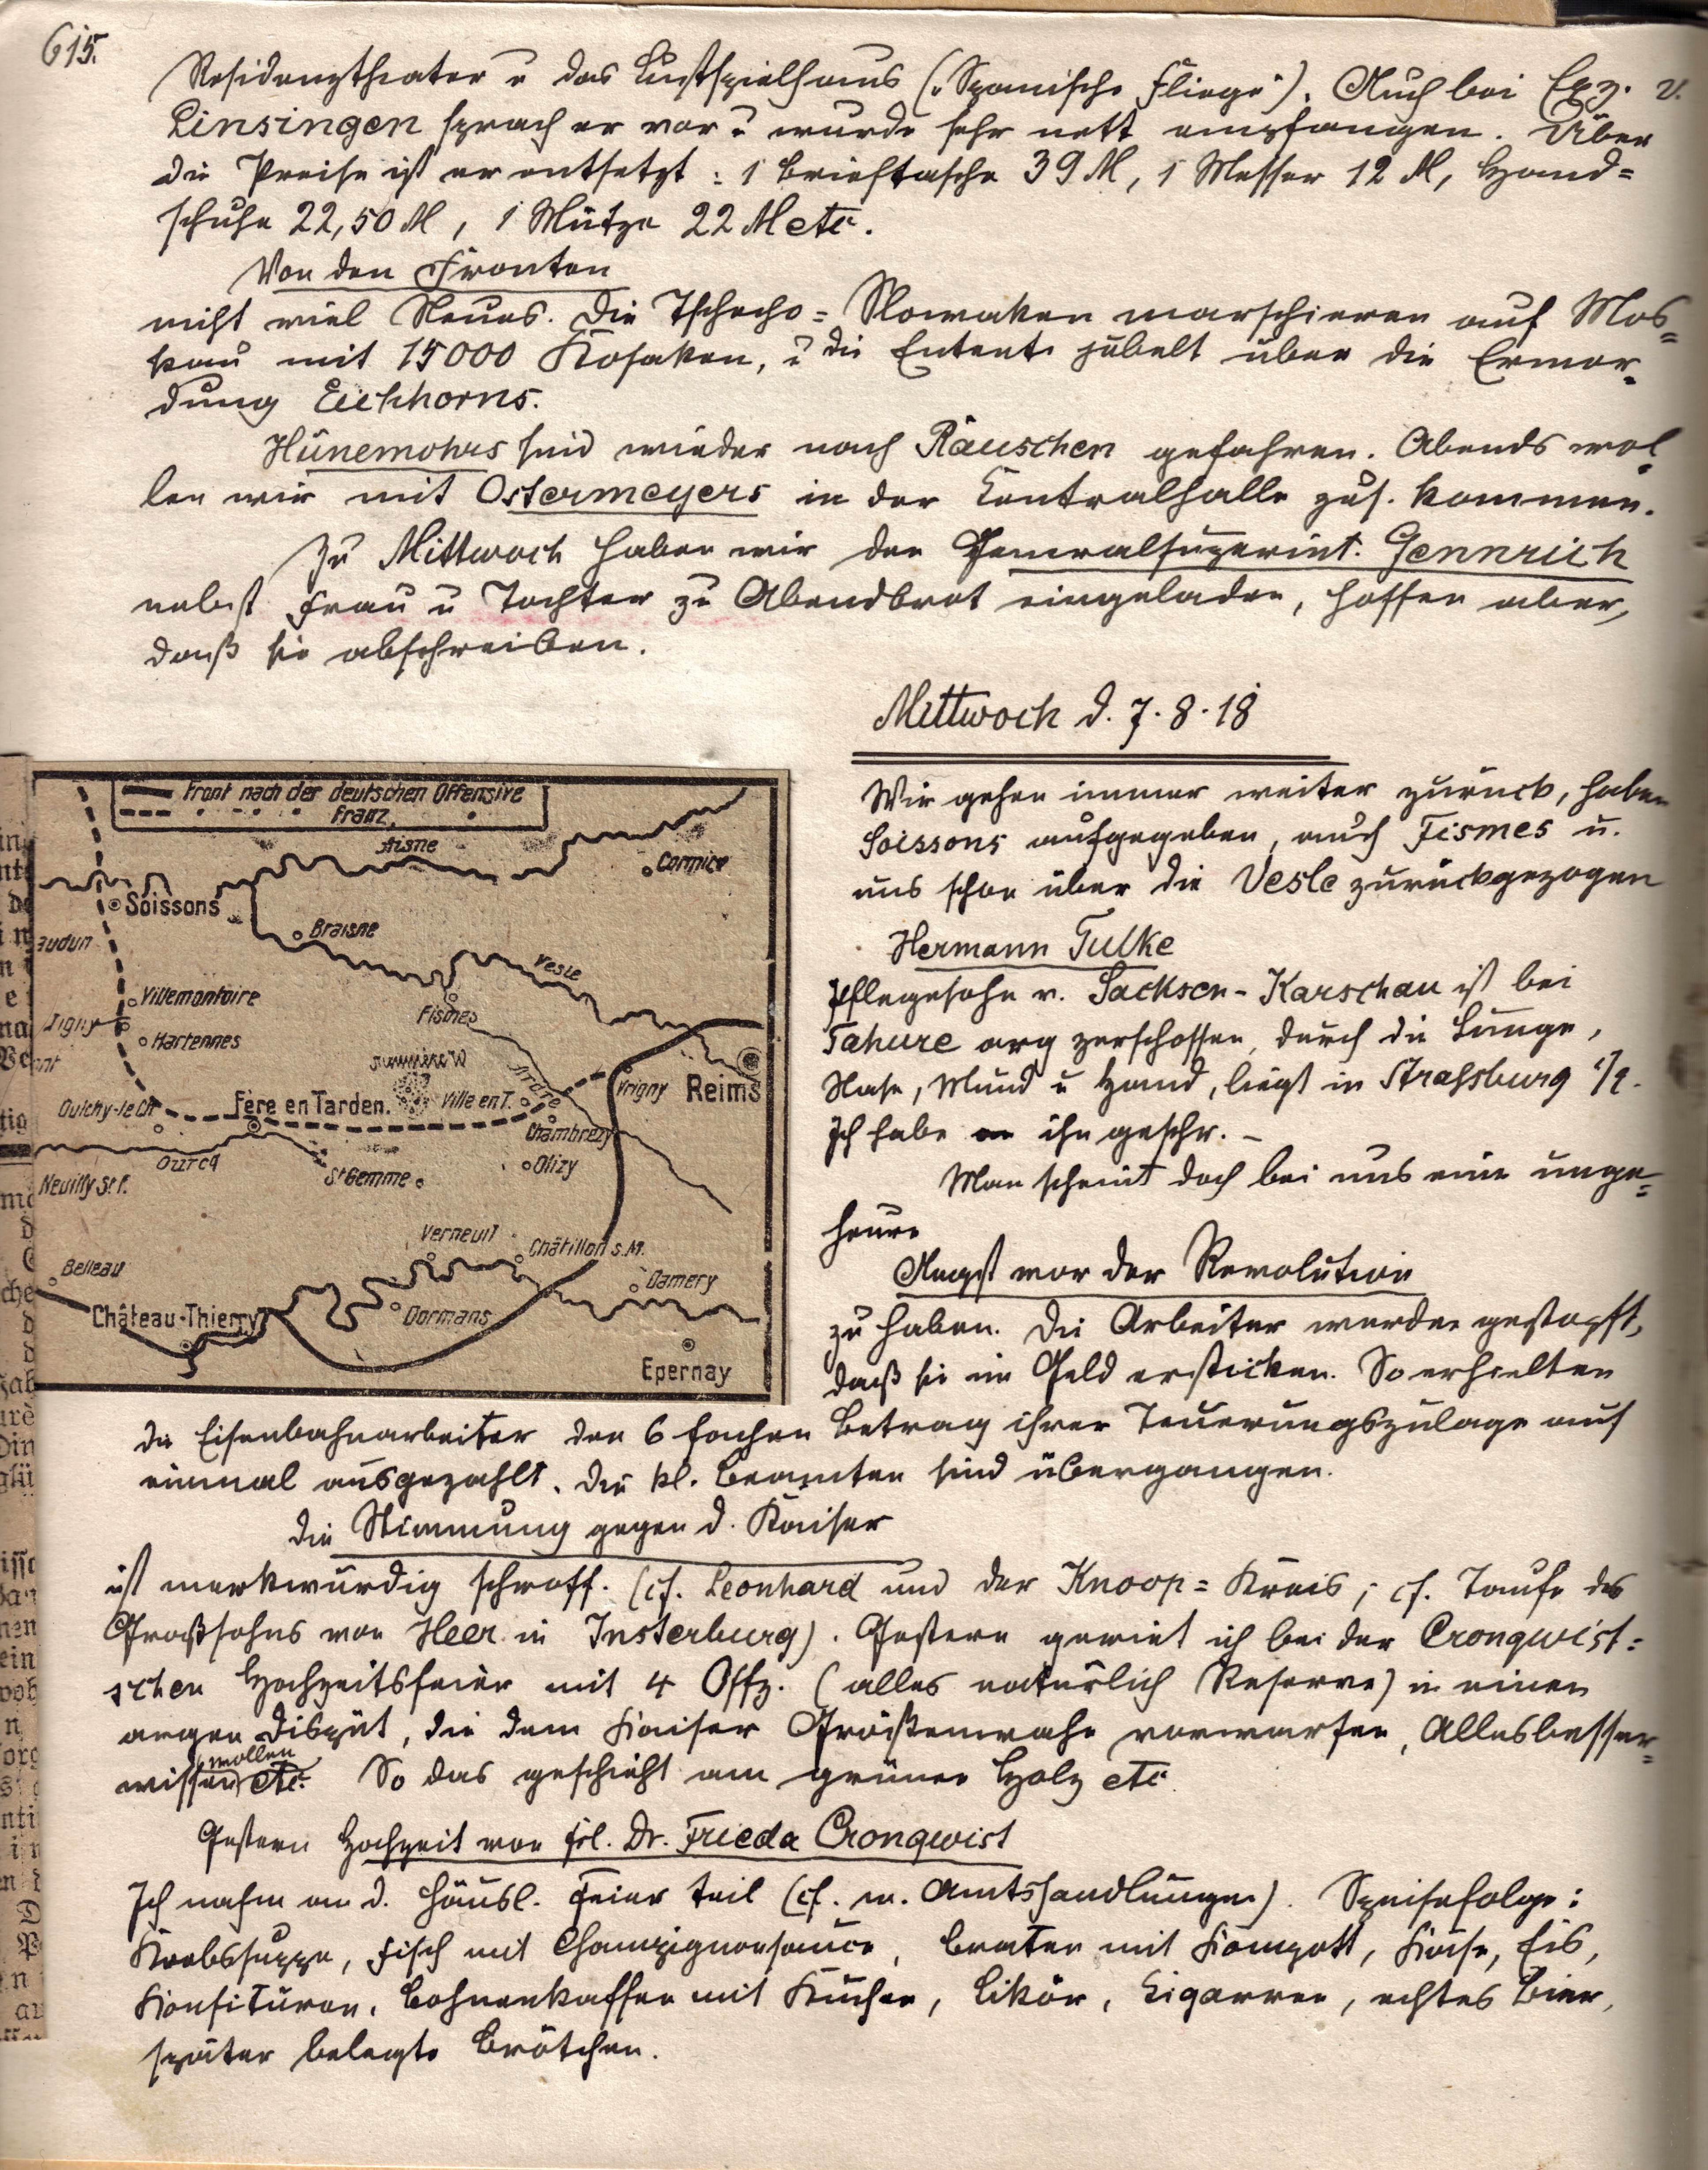 615.
Residenztheater u das Lustspielhaus („Spanische Fliege“). Auch bei Exz. v.
Linsingen sprach er vor u wurde sehr nett empfangen. Über
die Preise ist er entsetzt: 1 Brieftasche 39 M, 1 Messer 12 M, Hand=
schuhe 22,50 M, 1 Mütze 22 M etc.
Von den Fronten
nicht viel Neues. Die Tschecho=Slowaken marschieren auf Mos=
kau mit 15000 Kosaken, u die Entente jubelt über die Ermor=
dung Eichhorns.
Hünemohrs sind wieder nach Räuschen gefahren. Abends wol=
len wir mit Ostermeyers in der Centralhalle zus. kommen.
Zu Mittwoch haben wir den Generalsuperint. Gennrich
nebst Frau u Tochter zu Abendbrot eingeladen, hoffen aber,
daß sie abschreiben.
Mittwoch d. 7.8.18
Wir gehen immer weiter zurück, haben
Soissons aufgegeben, auch Fismes u.
uns schon über die Vesle zurückgezogen
Hermann Tulke
Pflegesohn v. Sacksen-Karschau ist bei
Tahure arg zerschossen, durch die Lunge,
Nase, Mund u Hand, liegt in Strassburg i/E.
Ich habe an ihn geschr. –
Man scheint doch bei uns eine unge=
heure
Angst vor der Revolution
zu haben. Die Arbeiter werden gestopft,
daß sie im Geld ersticken. So erhielten
die Eisenbahnarbeiter den 6 fachen Betrag ihrer Teuerungszulage auf
einmal ausgezahlt. Die kl. Beamten sind übergangen.
Die Stimmung gegen d. Kaiser
ist merkwürdig schroff. (cf. Leonhard und der Knoop=Kreis; cf. Taufe des
Großsohns von Heer in Insterburg). Gestern geriet ich bei der Cronqwist=
schen Hochzeitsfeier mit 4 Offz. (alles natürlich Reserve) in einen
argen Disput, die dem Kaiser Größenwahn vorwarfen, Allesbesser=
wissenwollen etc. So das geschieht am grünen Holz etc
Gestern Hochzeit von Frl. Dr. Frieda Cronqwist
Ich nahm an d. häusl. Feier teil (cf. m. Amtshandlungen). Speisefolge:
Krebssuppe, Fisch mit Champignonsauce, Braten mit Kompott, Käse, Eis,
Konfituren, Bohnenkaffee mit Kuchen, Likör, Zigarren, echtes Bier,
später belegte Brötchen.
Front nach der deutschen Offensive
Franz.
Aisne
Cormice
Soissons
Braisne
audun
Vesle
Villemontoire
Fismes
Tigny
Hartennes
Ardre
Vrigny
Reims
Oulchy-le Ch
Fère en Tarden.
Ville en T.
Chambrecy
Olizy
Ourcq
St Gemme
Neuilly St. F.
Verneuil
Châtillon s. M.
Belleau
Damery
Château-Thierry
Dormans
Epernay